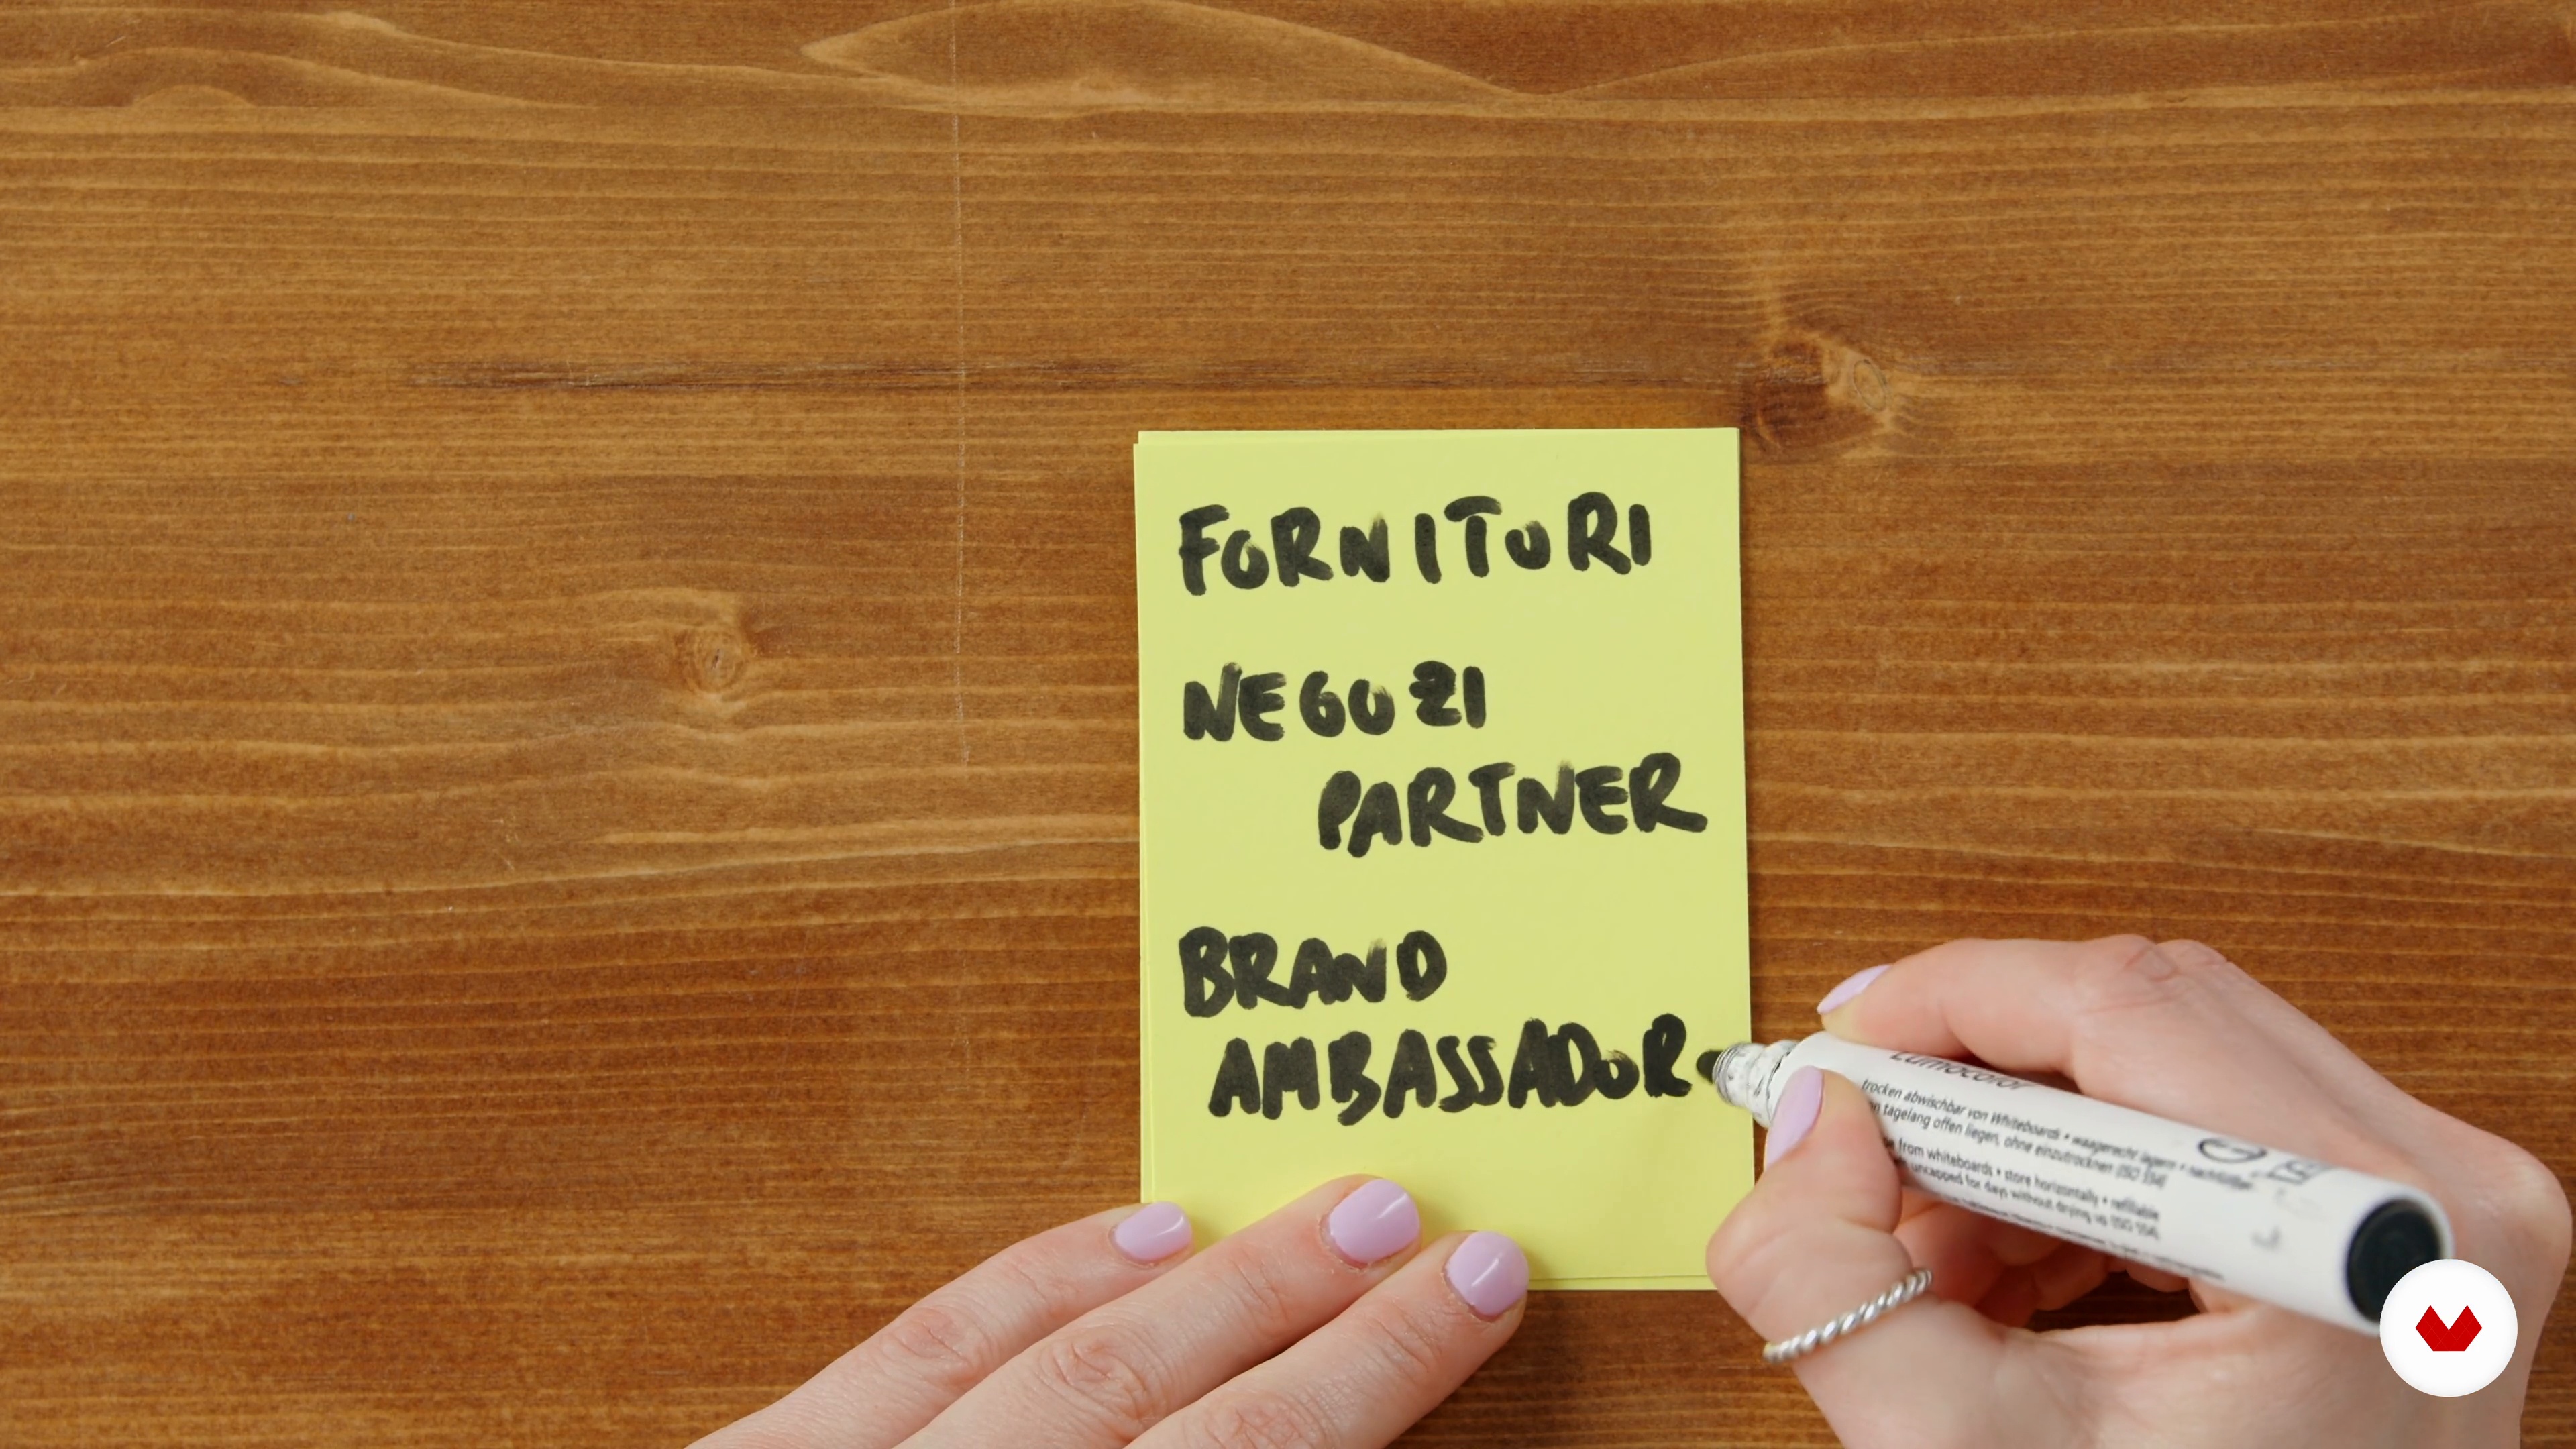 FORNITORI
NEGOZI
PARTNER
BRAND
AMBASSADOR
Lumocolor
trocken abwischbar von Whiteboards • waagerecht lagern • nachfüllbar
n tagelang offen liegen, ohne einzutrocknen (ISO 554)
from whiteboards • store horizontally • refillable
uncapped for days without drying up (ISO 554)